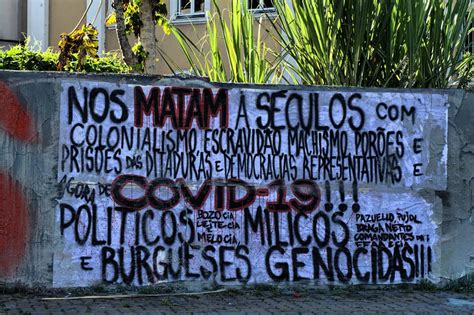 NOS MATAM A SÉCULOS COM
COLONIALISMO, ESCRAVIDÃO, MACHISMO, PORÕES E
PRISÕES DAS DITADURAS E DEMOCRACIAS REPRESENTATIVAS E
AGORA DE COVID-19!!!
POLÍTICOS BOZO CIA MILICOS PAZUELLO, PUJOL
CIA BRAGA NETTO
MELO CIA COMANDANTES
E BURGUESES GENOCIDAS!!!